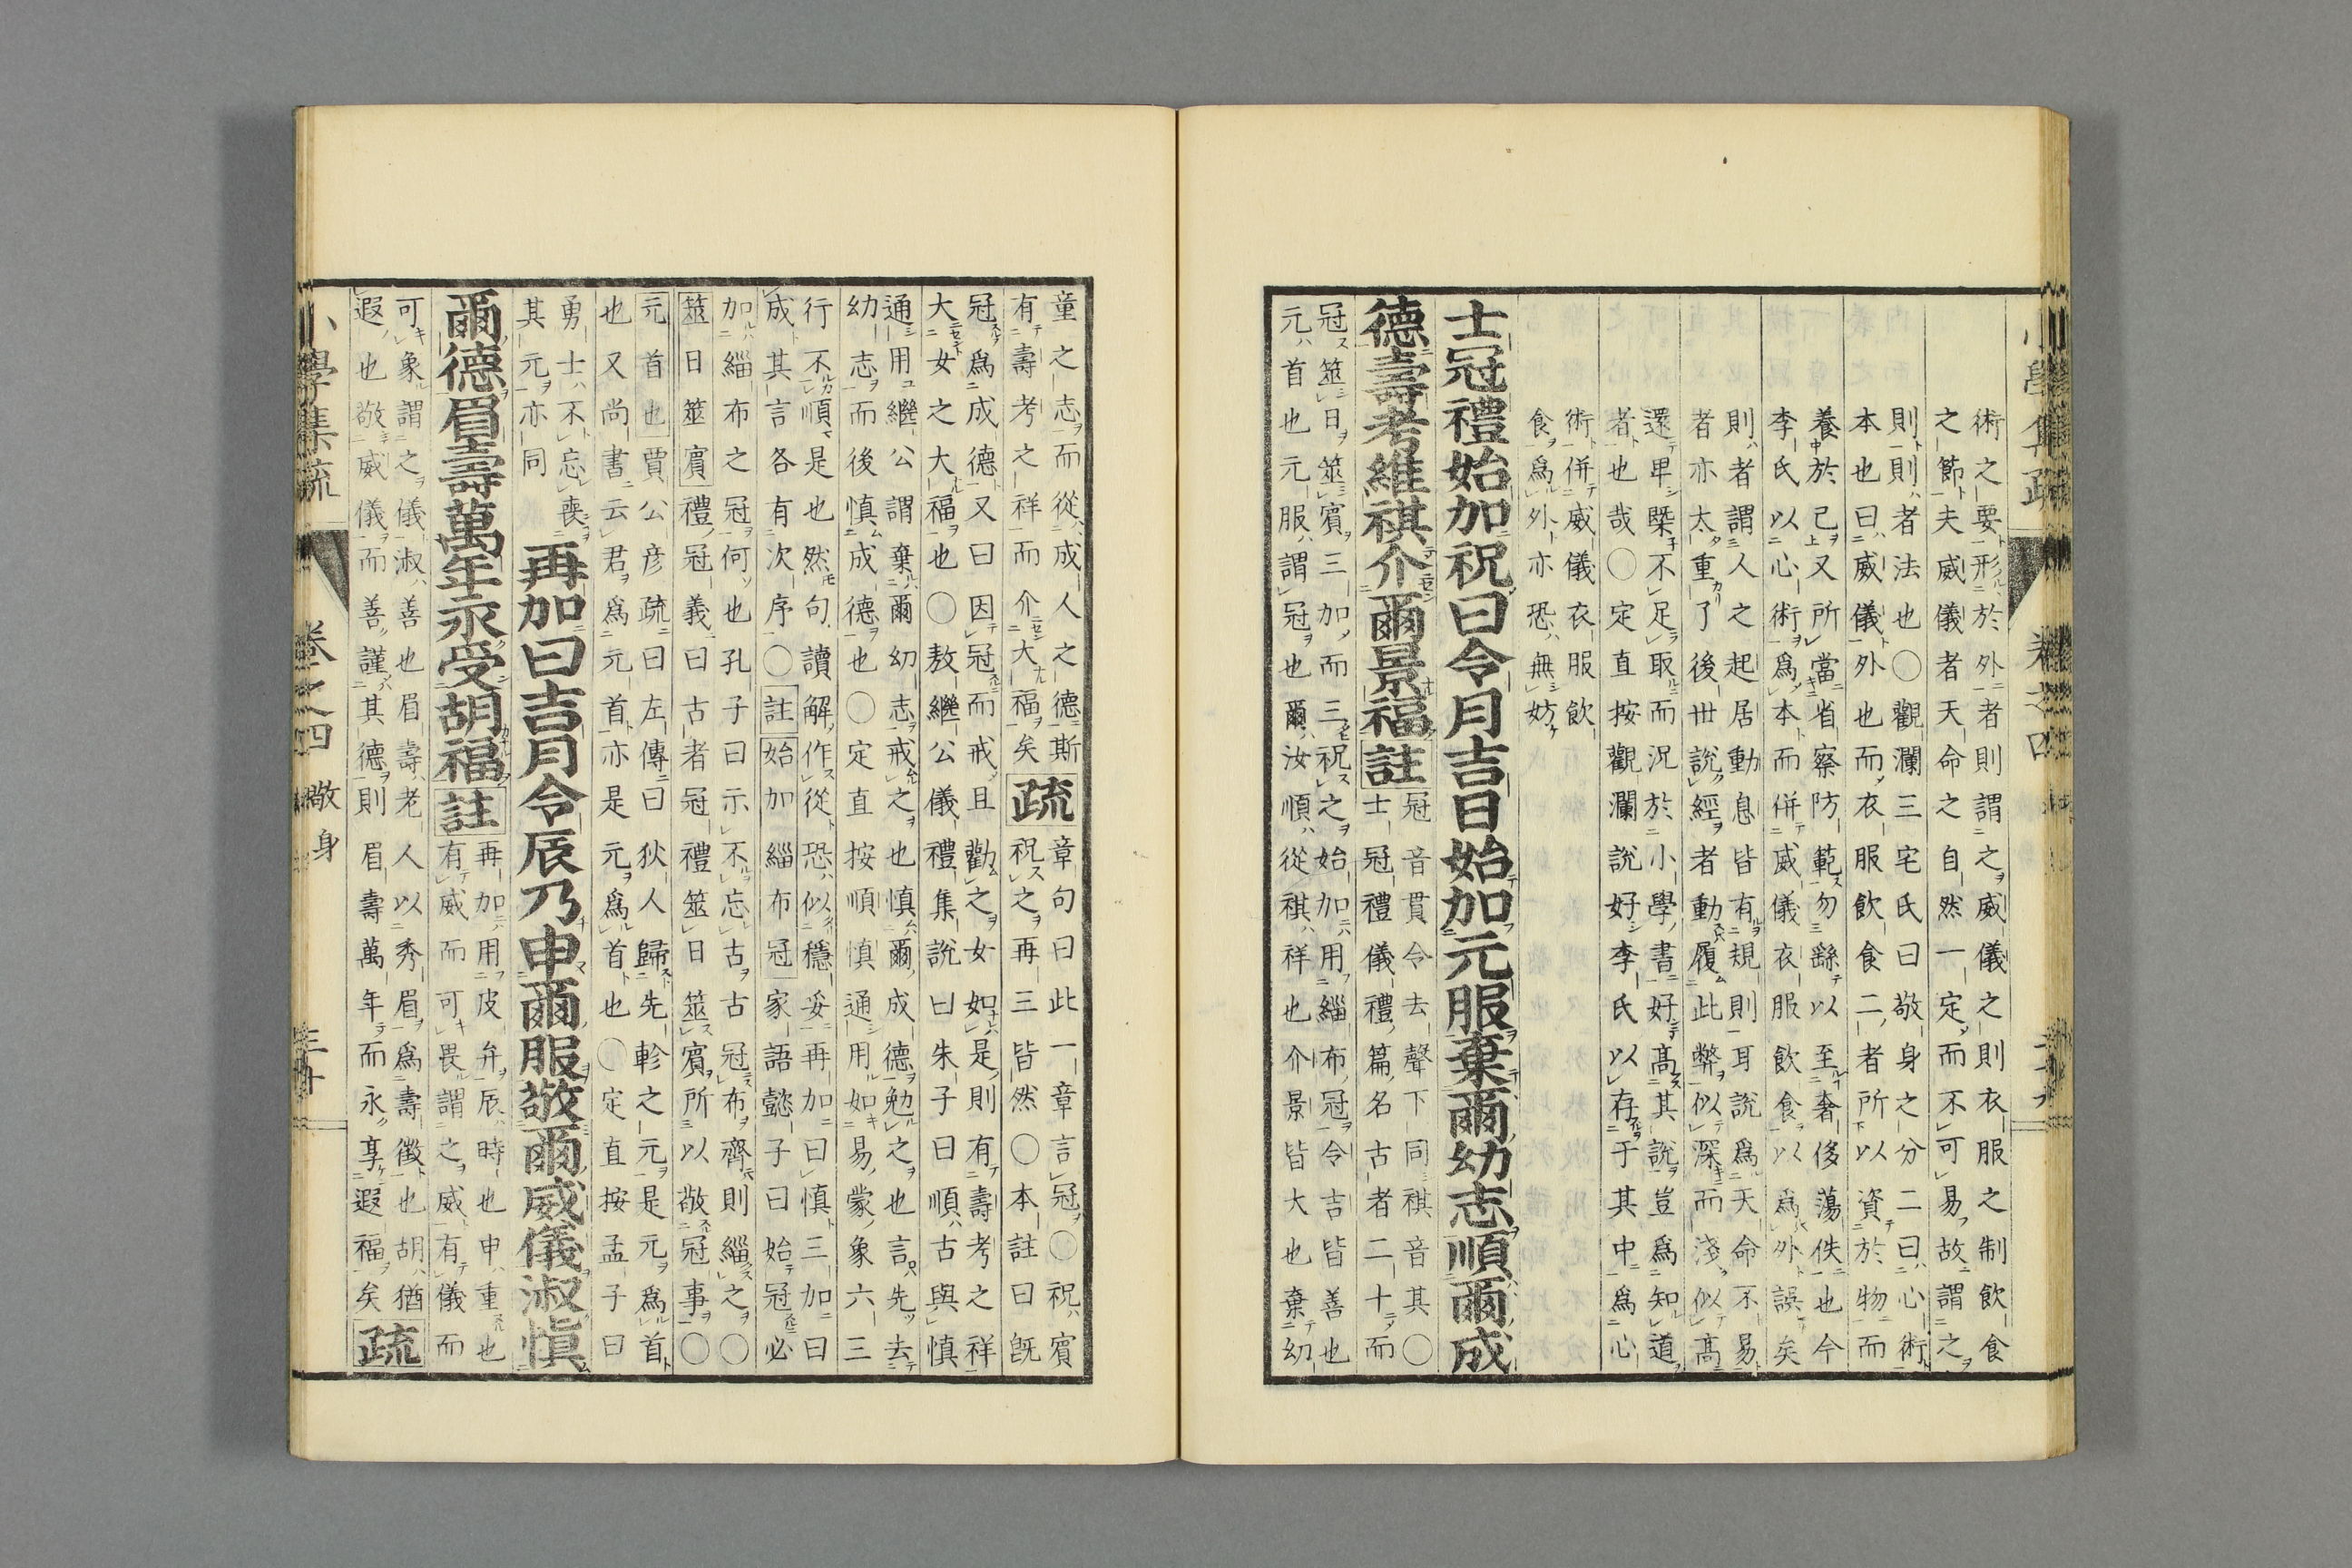 術之要形於外者則謂之威儀之則衣服之制飲食
之節夫威儀者天命之自然一定而不可易故謂之
則則者法也〇觀瀾三宅氏曰敬身之分二曰心術
本也曰威儀外也而衣服飲食二者所以資於物而
養於己又所當省察防範勿繇以至奢侈蕩佚也今
李氏以心術爲本而併威儀衣服飲食以爲外誤矣
則者謂人之起居動息皆有規則耳說爲天命不易
者亦太重了後世說經者動履此弊似深而淺似高
還卑槩不足取而況於小學書好高其說豈爲知道
者也哉〇定直按觀瀾說好李氏以存于其中爲心
術併威儀衣服飲
食爲外亦恐無妨
士冠禮始加祝曰令月吉日始加元服棄爾幼志順爾成
德壽考維祺介爾景福註
冠音貫令去聲下同祺音其〇
士冠禮儀禮篇名古者二十而
冠筮日筮賓三加而三祝之始加用緇布冠令吉皆善也
元首也元服謂冠也爾汝順從祺祥也介景皆大也棄幼
童之志而從成人之德斯
有壽考之祥而介大福矣
疏
章句曰此一章言冠〇祝賓
祝之再三皆然〇本註曰旣
冠爲成德又曰因冠而戒且勸之女如是則有壽考之祥
大女之大福也〇敖繼公儀禮集說曰朱子曰順古與慎
通用繼公謂棄爾幼志戒之也慎爾成德勉之也言先去
幼志而後慎成德也〇定直按順慎通用如易蒙象六三
行不順是也然句讀解作從恐似穩妥再加曰慎三加曰
成其言各有次序〇註始加緇布冠家語懿子曰始冠必
加緇布之冠何也孔子曰示不忘古古冠布齊則緇之〇
筮日筮賓禮冠義曰古者冠禮筮日筮賓所以敬冠事〇
元首也賈公彥疏曰左傳曰狄人歸先軫之元是元爲首
也又尚書云君爲元首亦是元爲首也〇定直按孟子曰
勇士不忘喪
其元亦同
再加曰吉月令辰乃申爾服敬爾威儀淑慎
爾德眉壽萬年永受胡福註
再加用皮弁辰時也申重也
有威而可畏謂之威有儀而
可象謂之儀淑善也眉壽老人以秀眉爲壽徵也胡猶
遐也敬威儀而善謹其德則眉壽萬年而永享遐福矣疏
小學集疏
卷之四
敬身